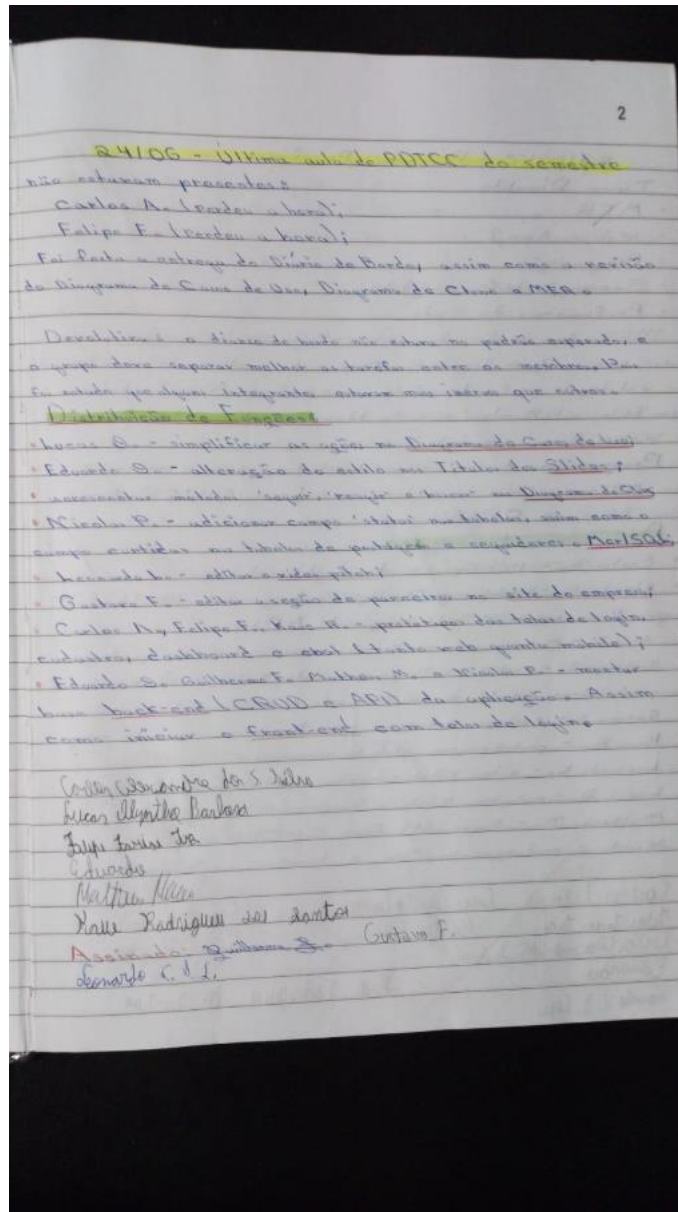 2
24/06 - Última aula de PDTCC do semestre
não estavam presentes:
Carlos A. (perdeu a hora);
Felipe F. (perdeu a hora);
Foi feita a entrega do Diário de Bordo, assim como a revisão
do Diagrama de Casos de Uso, Diagrama de Classe e MER.
o diário de bordo não estava no padrão esperado, e
o grupo deve separar melhor as tarefas entre os membros. Pois
foi notado que alguns integrantes estavam mais que outros.
Distribuição de Funções:
• Lucas - simplificar as ações no Diagrama de Casos de Uso;
• Eduardo S. - alteração do estilo nos Títulos dos Slides;
• acrescentar métodos 'seguir', 'reagir' e 'buscar' no Diagrama de Class
• Nicolas P. - adicionar campo 'status' nas tabelas, assim como o
campo curtidas na tabelas de publicação e seguidores. Mer/SQL;
• Leonardo L. - editar o vídeo pitch;
• Gustavo F. - editar a seção de parceiros no site da empresa;
• Carlos A., Felipe F., Kaue R. - protótipos das telas de login,
cadastro, dashboard e (tanto web quanto mobile);
• Eduardo S. Guilherme F. Matheus M. e Nicolas P. - montar
base back-end (CRUD e API) da aplicação. Assim
como iniciar o front-end com telas de login.
Carlos Alexandre da S.
Lucas Barbosa
Felipe
Eduardo
Matheus
Kaue Rodrigues dos Santos
Assinado. Guilherme Gustavo F.
Leonardo C. d. L.